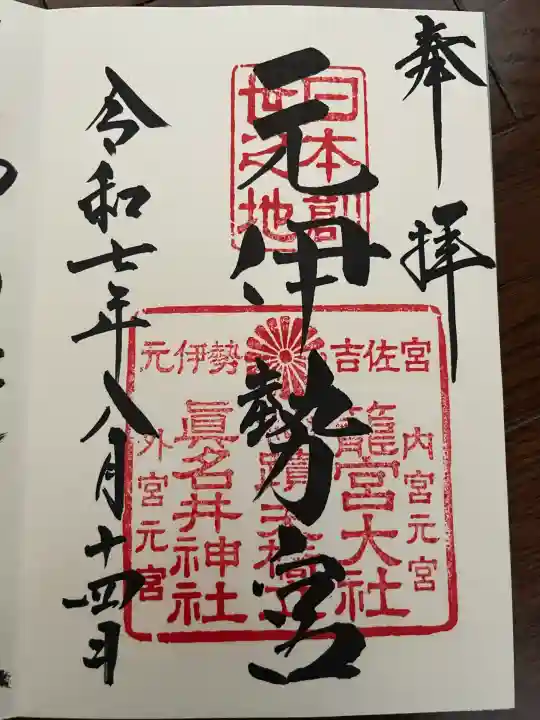 奉拝
日本創
世之地
元伊勢宮
宮佐吉
勢伊元
内宮元宮
籠宮大社
眞名井神社
外宮元宮
令和七年八月十四日